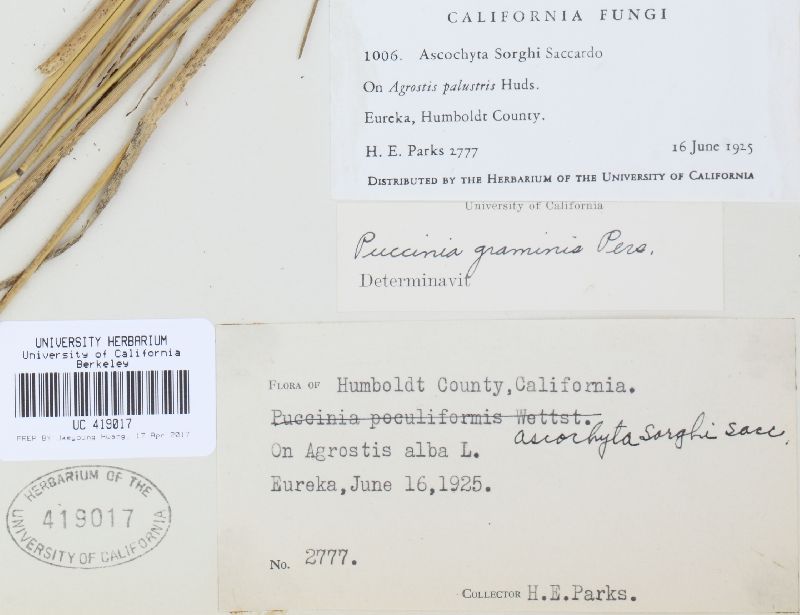 CALIFORNIA FUNGI
1006. Ascochyta Sorghi Saccardo
On Agrostis palustris Huds.
Eureka, Humboldt County.
H. E. Parks 2777 16 June 1925
Distributed by the Herbarium of the University of California
University of California
Puccinia graminis Pers.
Determinavit
UNIVERSITY HERBARIUM
University of California
Berkeley
UC 419017
PREP BY: Jaeyoung Hwang, 17 Apr 2017
HERBARIUM OF THE
419017
UNIVERSITY OF CALIFORNIA
Flora of Humboldt County, California.
Puccinia poculiformis Wettst.
ascochyta Sorghi Sacc.
On Agrostis alba L.
Eureka, June 16, 1925.
No. 2777.
Collector H.E.Parks.